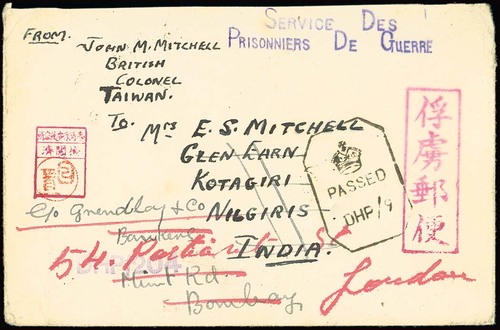 SERVICE DES
PRISONNIERS DE GUERRE
FROM.
JOHN M. MITCHELL
BRITISH
COLONEL
TAIWAN.
To.
Mrs E. S. MITCHELL
GLEN EARN
KOTAGIRI
NILGIRIS
INDIA.
PASSED
DHP/9
俘虜郵便
c/o Grendlay & Co
Bankers
54. St
Mint Rd
Bombay
London